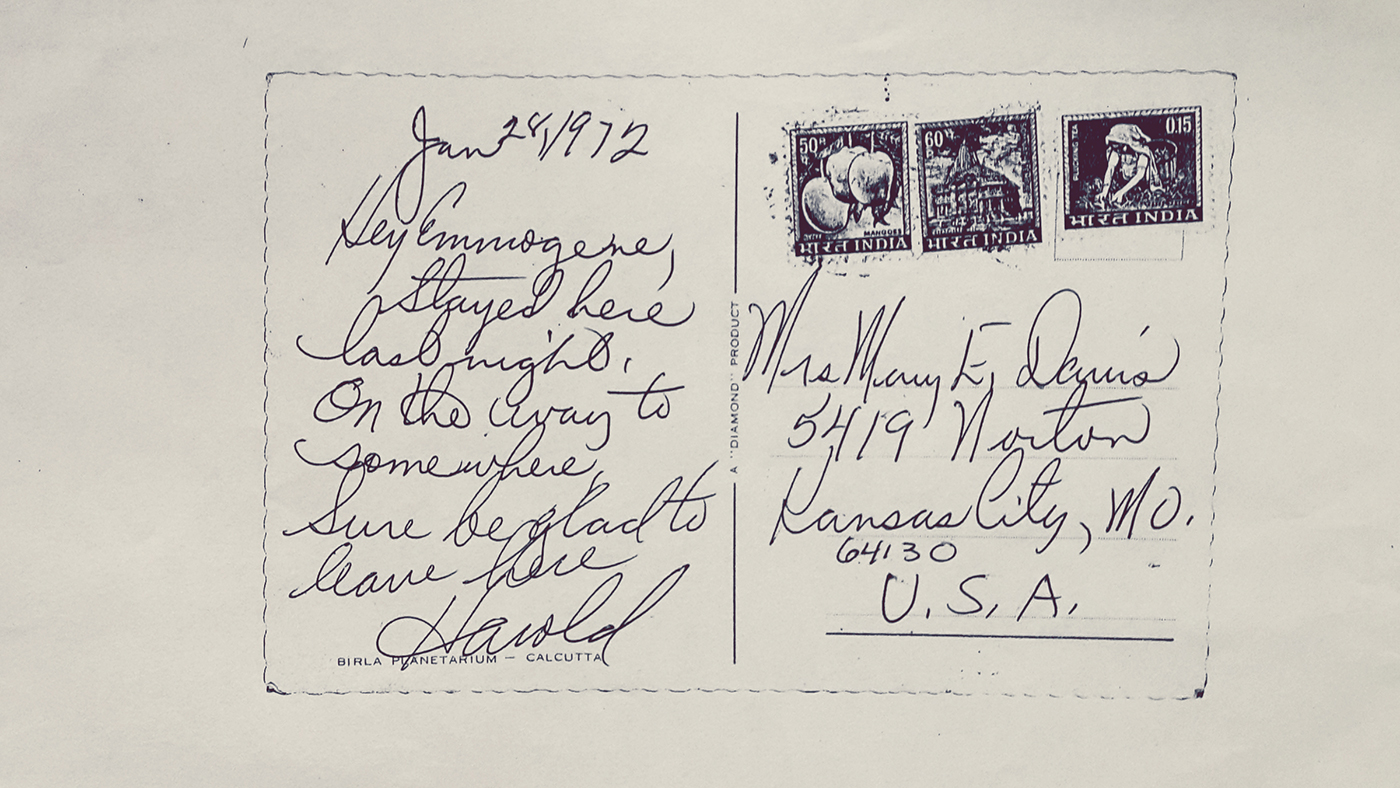 Jan 28, 1972
Hey Emmogene,
Stayed here
last night.
On the way to
somewhere,
Sure be glad to
leave here
Harold
BIRLA PLANETARIUM — CALCUTTA
A "DIAMOND" PRODUCT
50
MANGOES
भारत INDIA
60
भारत INDIA
0.15
भारत INDIA
Mrs Mary E, Davis
5419 Norton
Kansas City, MO.
64130
U.S.A.